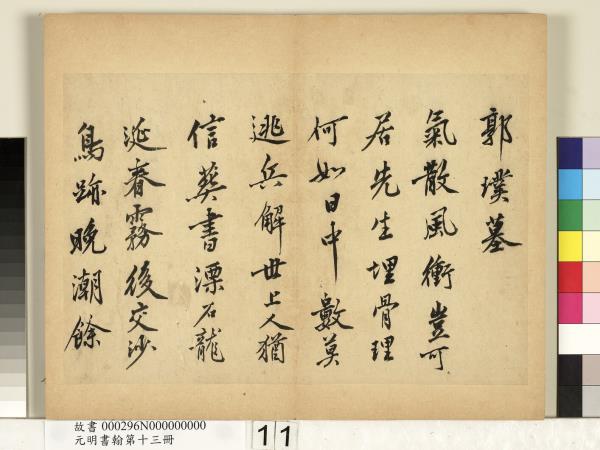 郭璞墓
氣散風衝豈可
居先生埋骨理
何如日中數莫
逃兵解世上人猶
信葬書漂石龍
涎春霧後交沙
鳥跡晚潮餘
故書 000296N000000000
元明書翰第十三冊
11